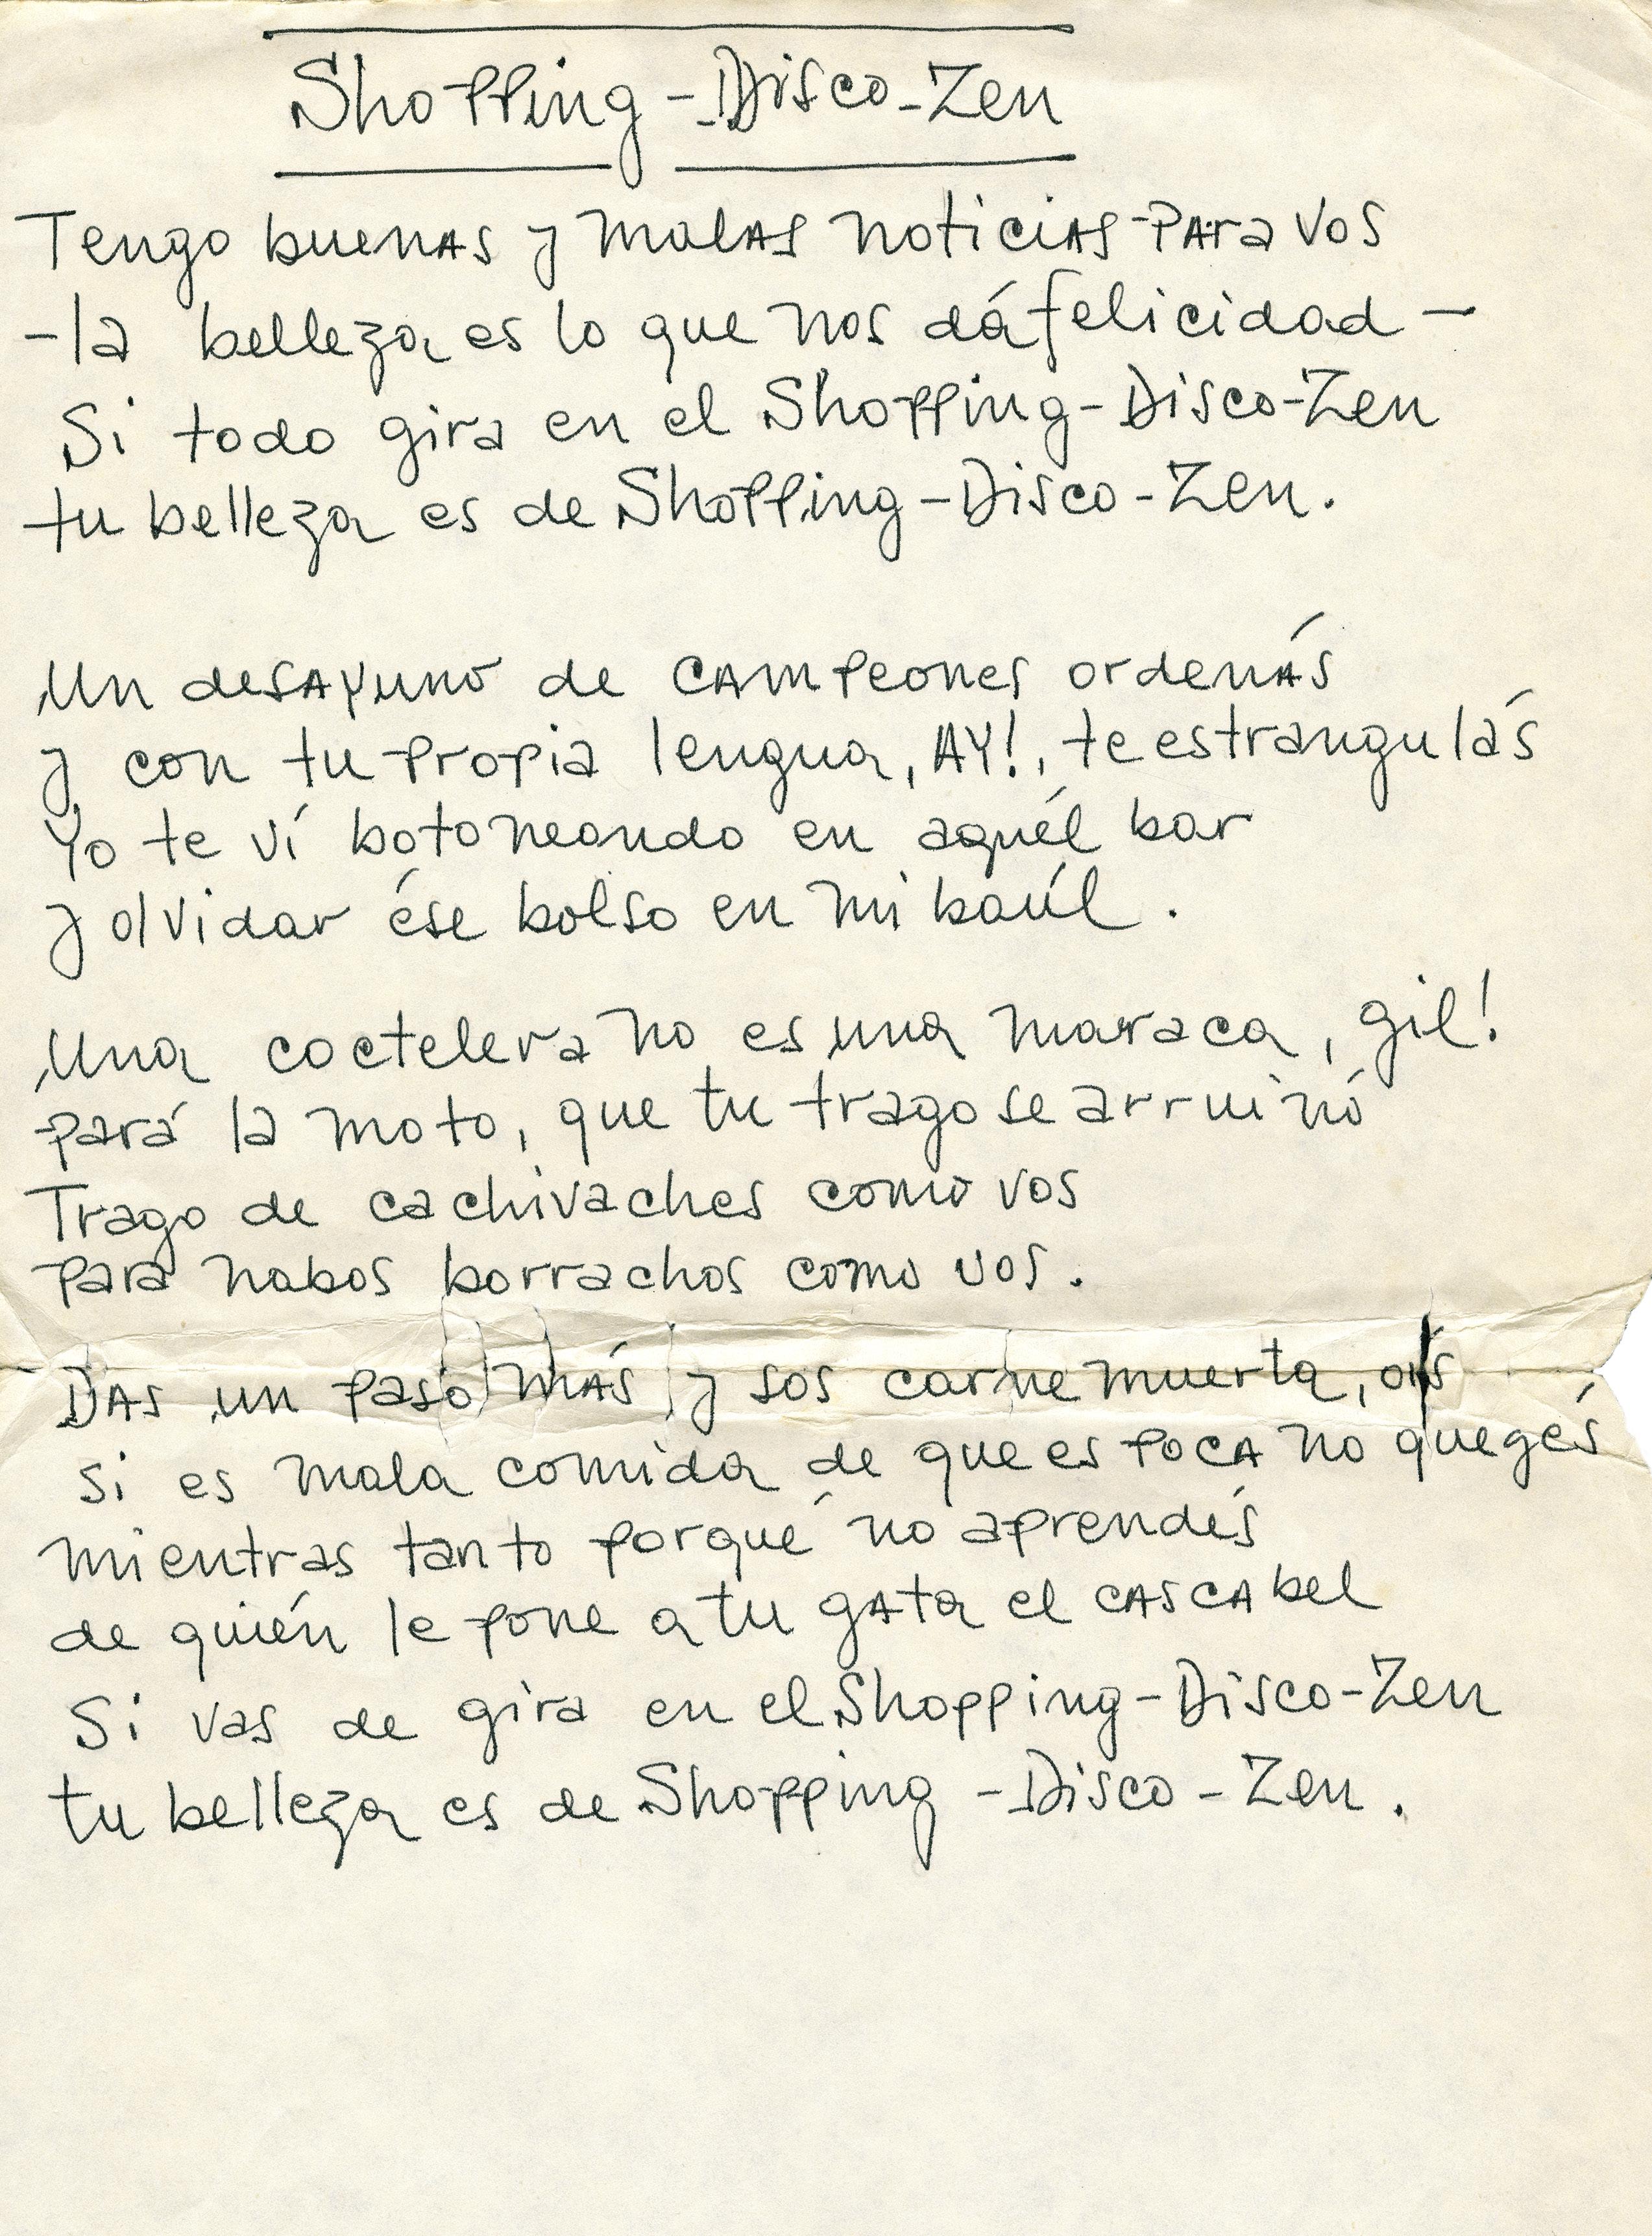 Shopping-Disco-Zen
Tengo buenas y malas noticias para vos
-la belleza es lo que nos dá felicidad-
Si todo gira en el Shopping-Disco-Zen
tu belleza es de Shopping-Disco-Zen.
Un desayuno de campeones ordenás
y con tu propia lengua, AY!, te estrangulás
Yo te ví botoneando en aquél bar
y olvidar ése bolso en mi baúl.
Una coctelera no es una maraca, gil!
pará la moto, que tu trago se arruinó
Trago de cachivaches como vos
para nabos borrachos como vos.
Das un paso más y sos carne muerta, oís
si es mala comida de que es poca no quegés
mientras tanto porqué no aprendés
de quién le pone a tu gata el cascabel
Si vas de gira en el Shopping-Disco-Zen
tu belleza es de Shopping-Disco-Zen.